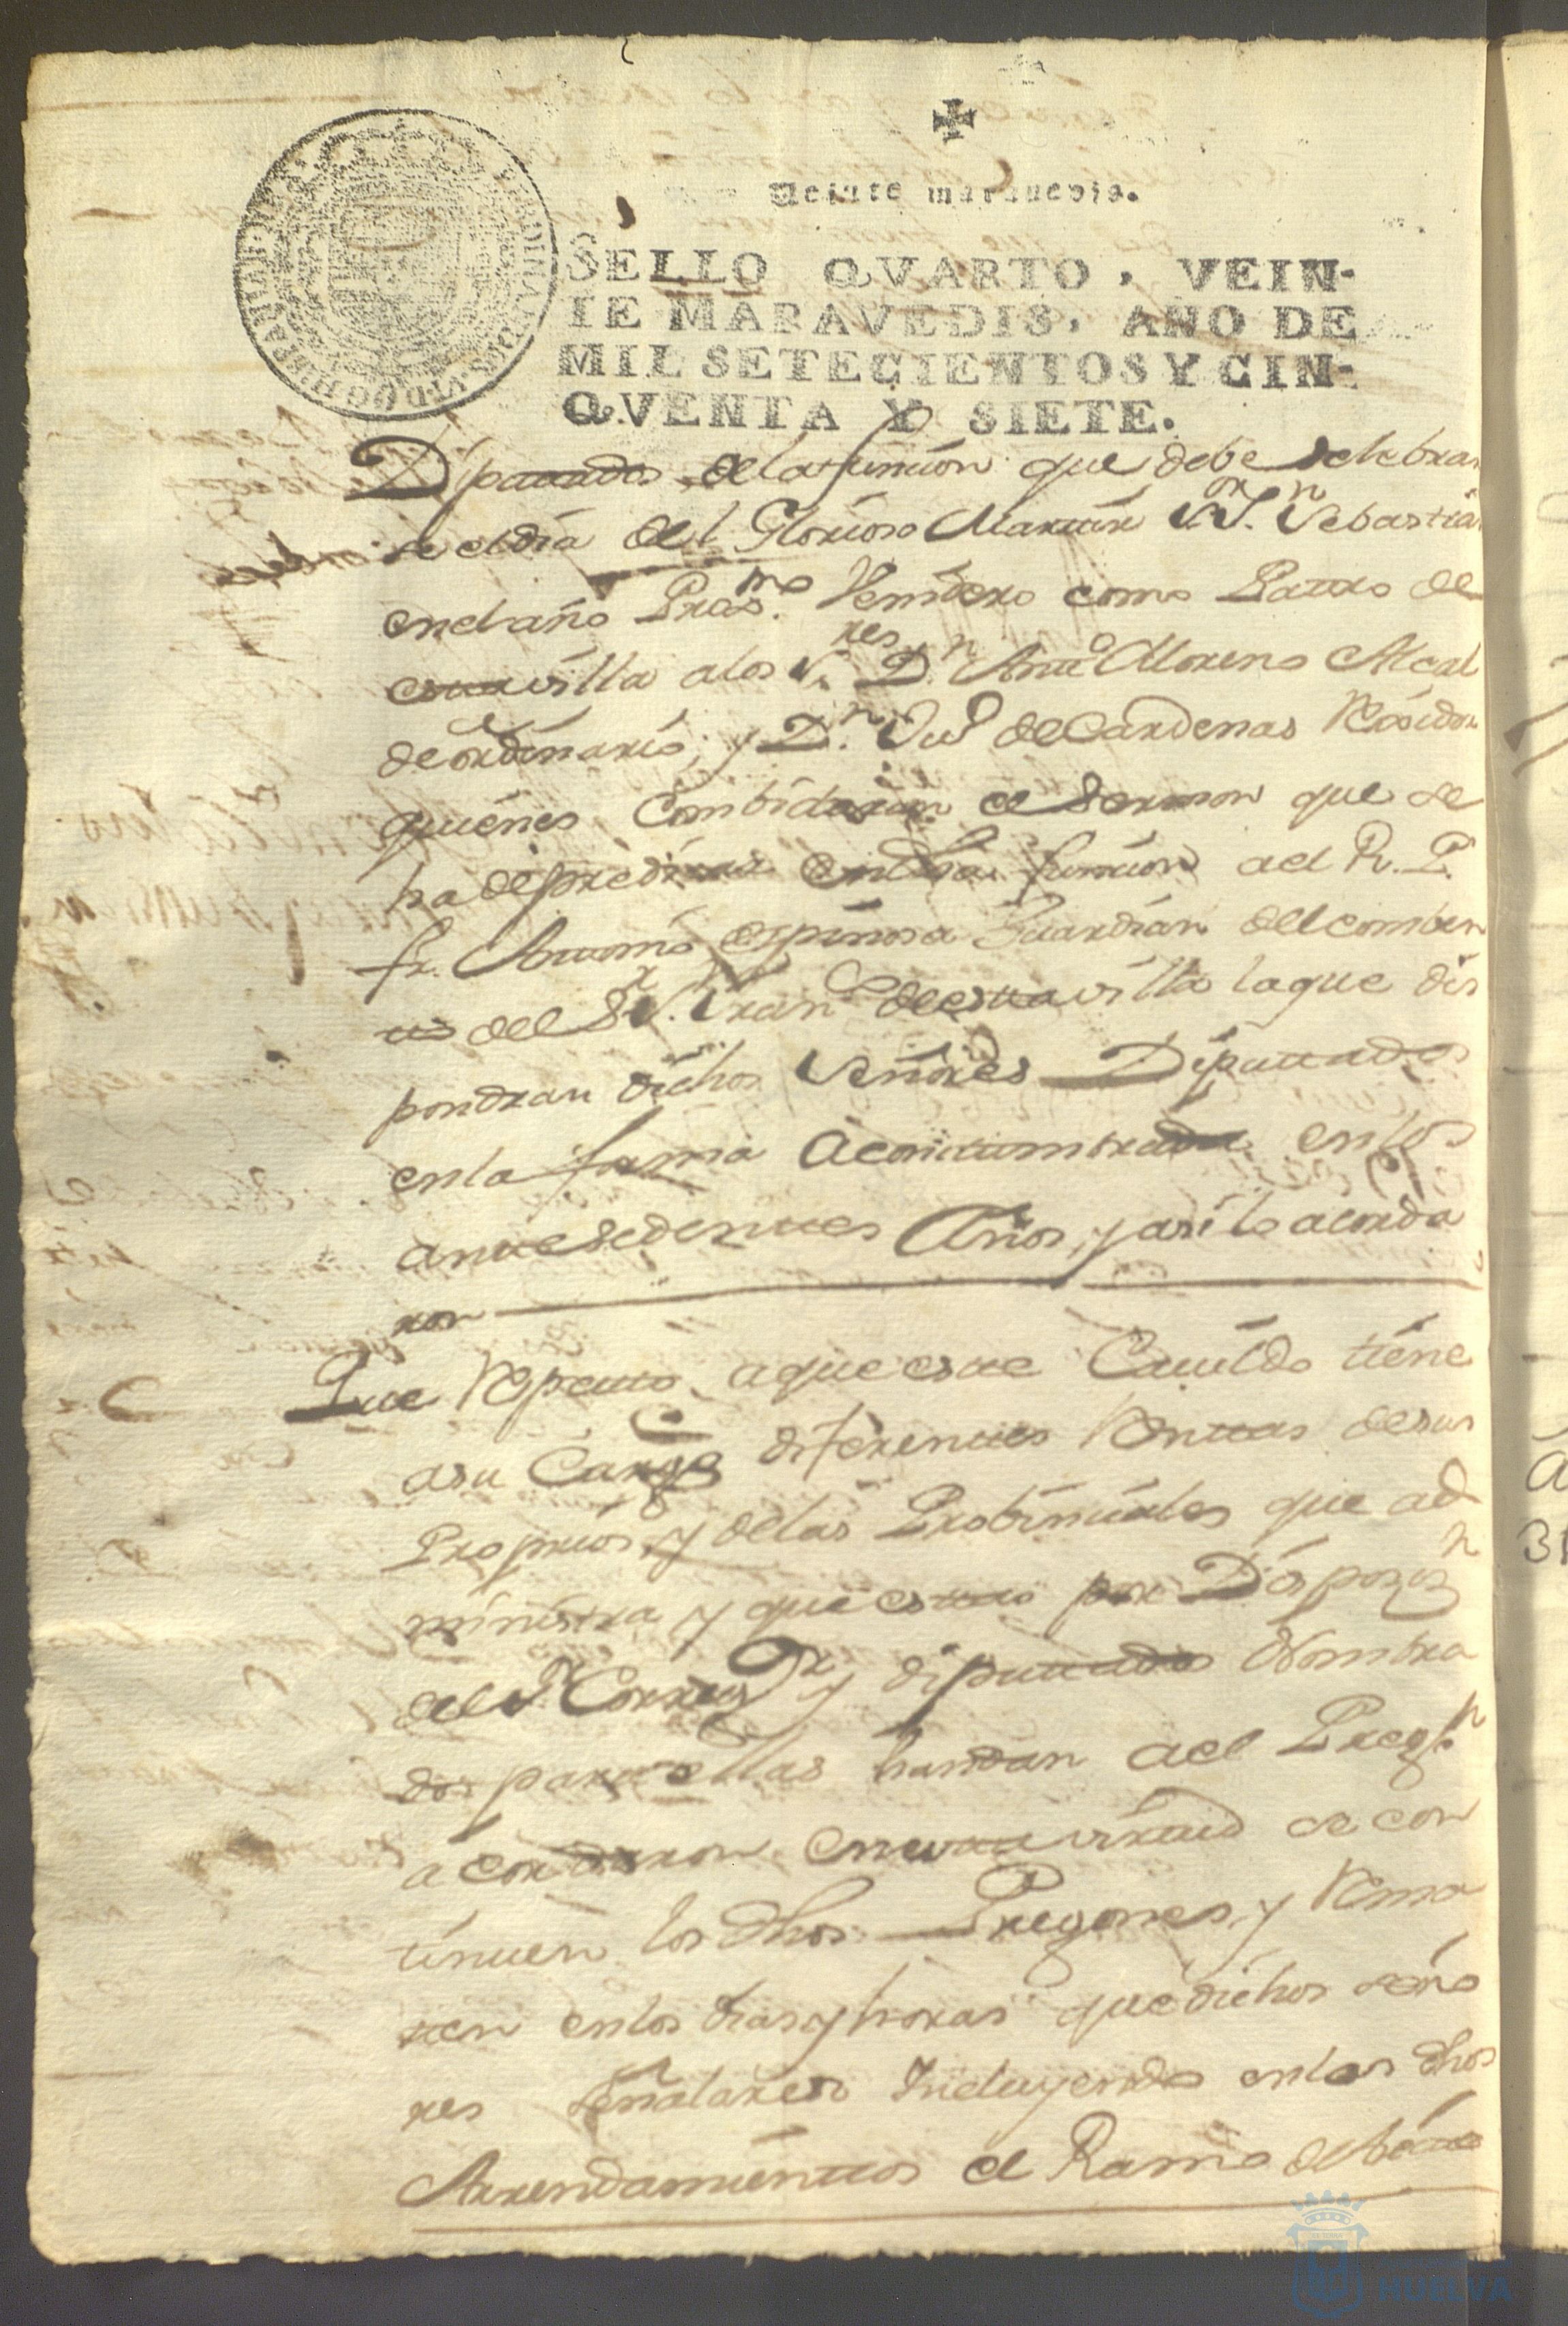 Veinte maravedis.
SELLO QVARTO, VEIN-
TE MARAVEDIS, AÑO DE
MIL SETECIENTOS Y CIN-
QVENTA Y SIETE.
Diputados de la funcion que debe selebrar
se el dia del Glorioso Martir Sr. Sn. Sebastian
en el año Prosmo. Venidero como Patro de
esta villa a los Sres. Dn. Anto Moreno Alcal
de ordinario, y Dn. Juo de Cardenas Residor
quienes Combidaran el Sermon que se
ha de predicar en dha funcion al R. P.
fr. Antonio espinosa Guardian del comben
to del Sr. Sn. Franco de esta villa la que dis
pondran dichos Señores Diputados
en la forma Acostumbrada en los
antesedentes Años, y asi lo acorda
ron
Que Respecto a que este Cavildo tiene
a su Cargo diferentes Rentas de sus
Proprios, y de las Probinciales que ad
ministra y que estas por Disposizn
del Sr. Corregr y diputados Nombra
dos para ellas handan al Pregn
acordaron en esta virtud se con
tinuen los dhos Pregones, y Rema
ten en los dias y horas que dichos seño
res señalaren Incluyendo en los dhos
Arrendamientos el Ramo de
HUELVA